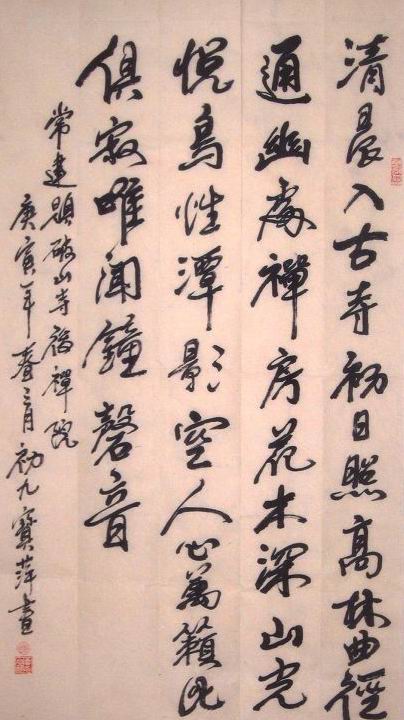 清晨入古寺初日照高林曲徑
通幽處禪房花木深山光
悦鳥性潭影空人心萬籟此
俱寂唯聞鐘磬音
常建題破山寺後禪院
庚寅年春三月初九寶萍書